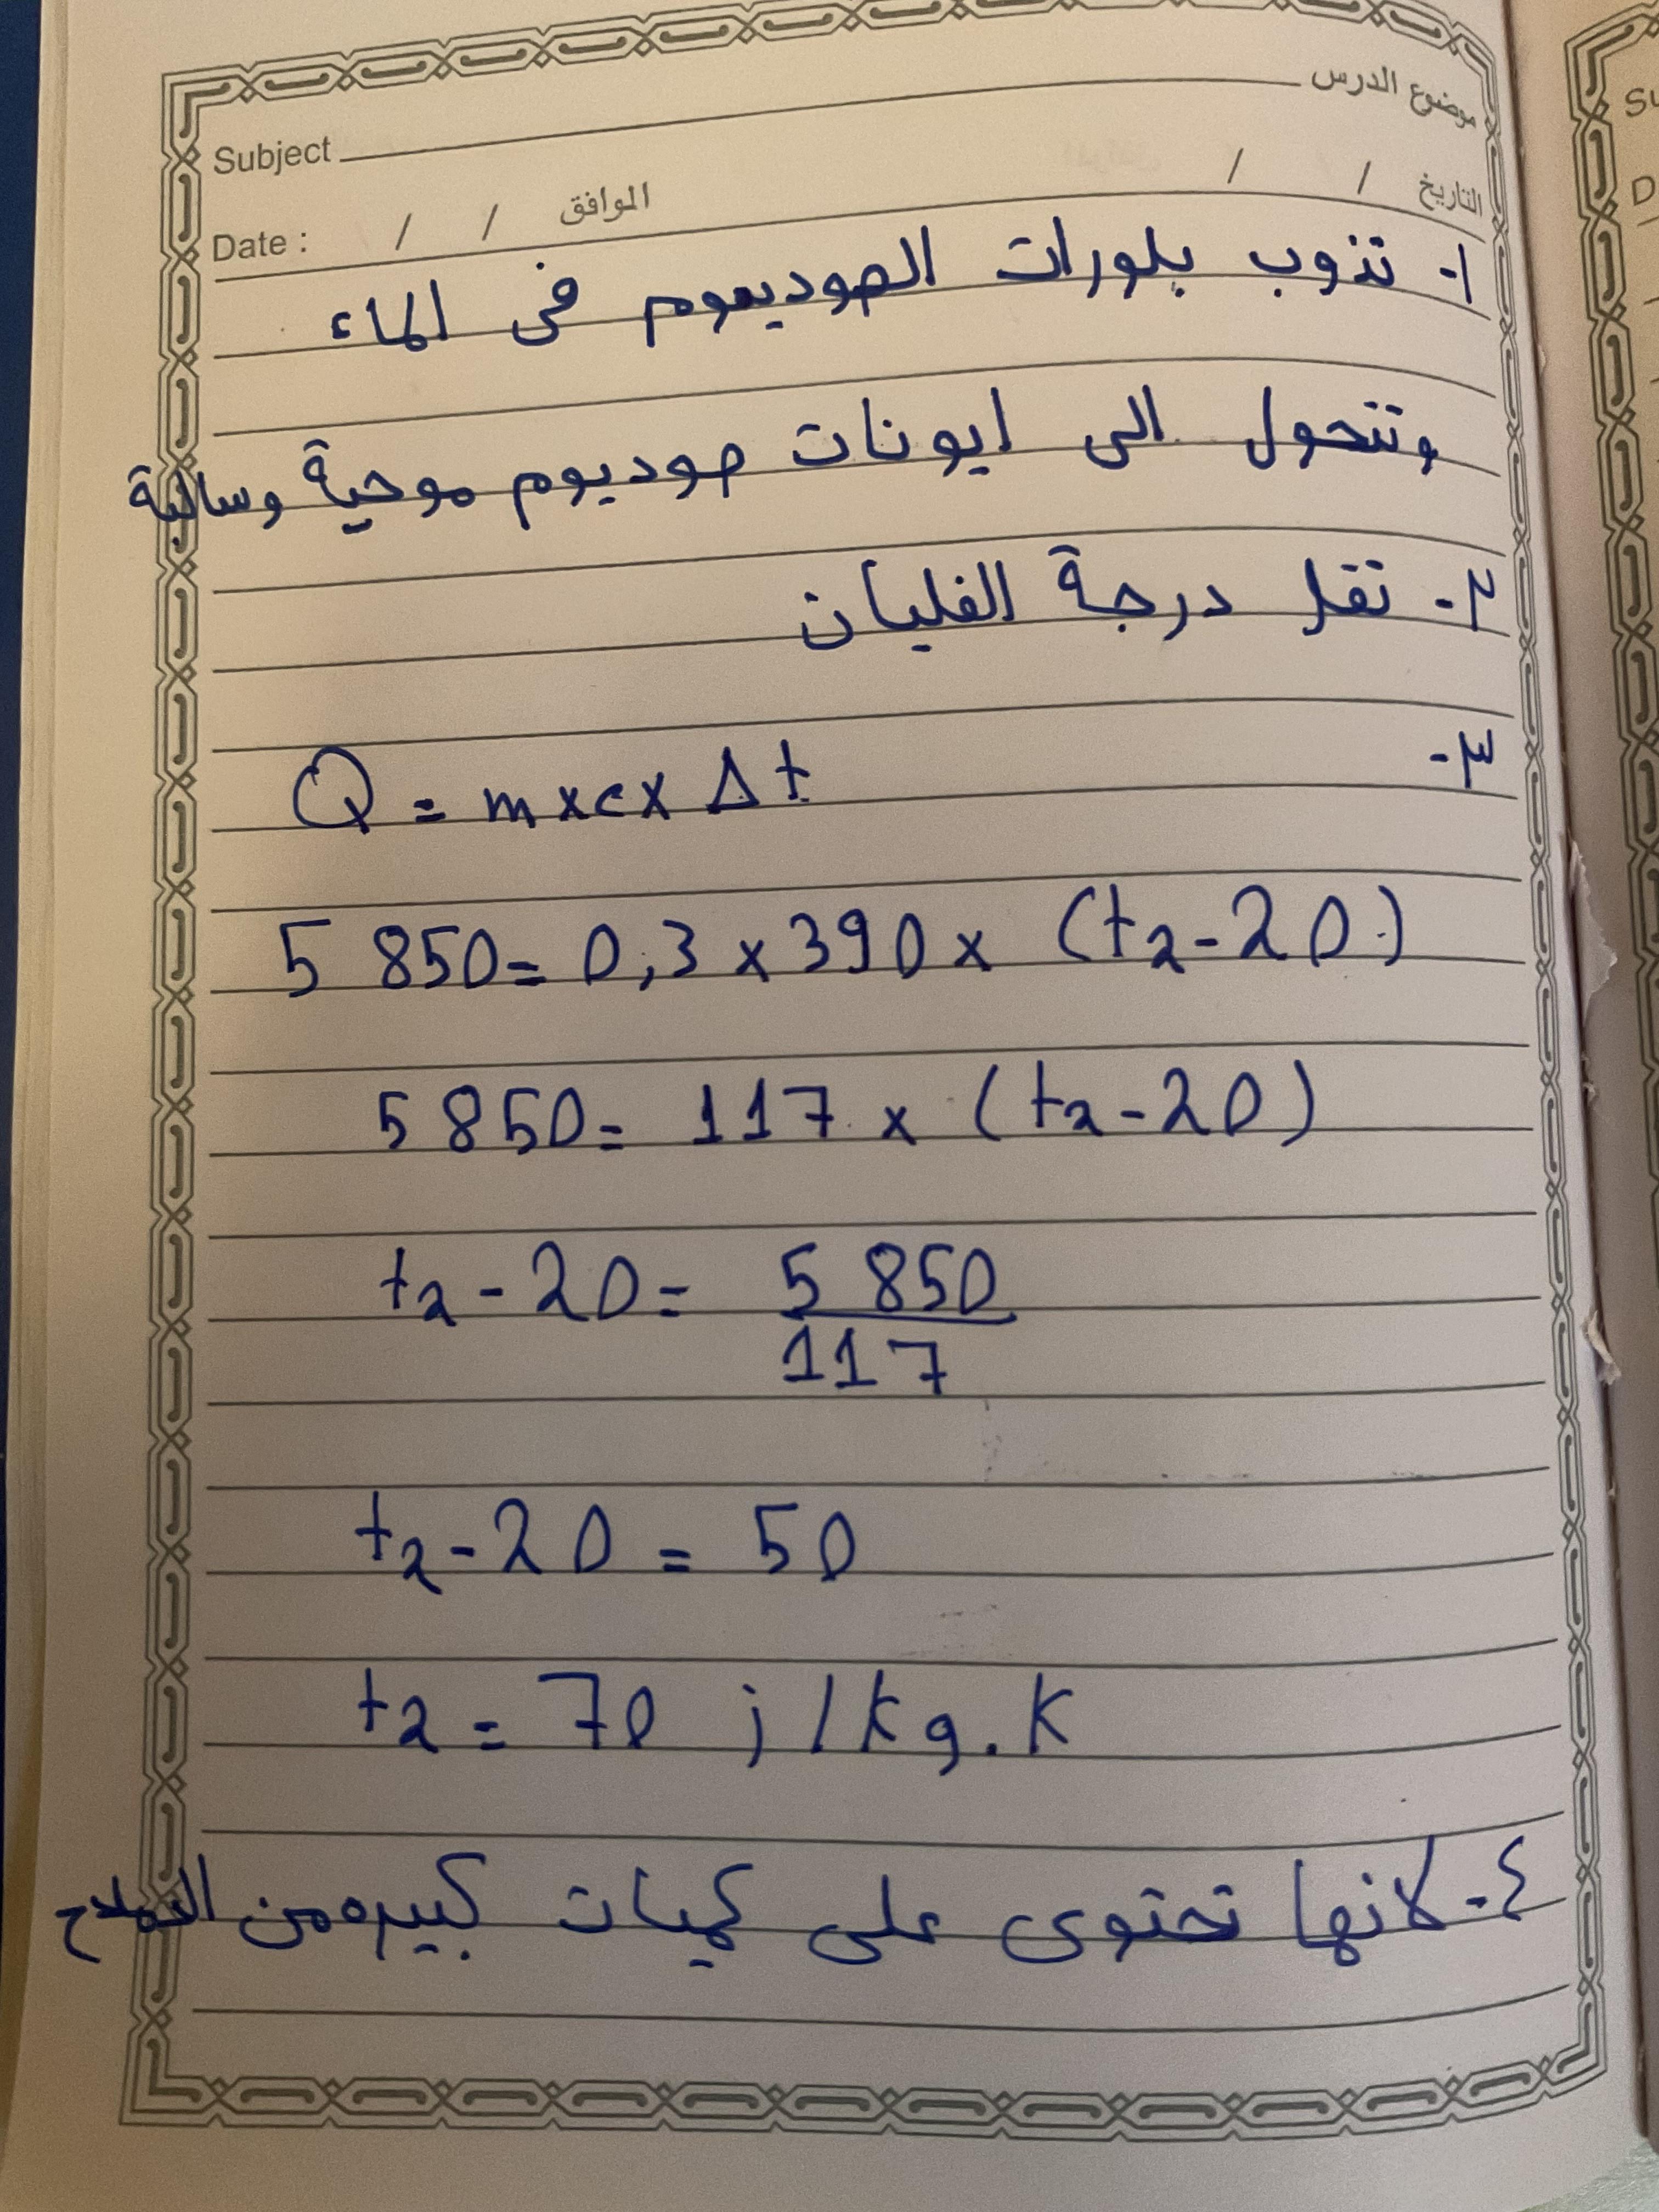 موضوع الدرس
Subject
التاريخ / /
الموافق / / Date :
١- تذوب بلورات الصوديوم فى الماء
وتتحول الى ايونات صوديوم موجبة وسالبة
٢- تقل درجة الغليان
٣-
Q = m x c x Δt
5 850 = 0,3 x 390 x (t2 - 20)
5 850 = 117 x (t2 - 20)
t2 - 20 = 5 850
117
t2 - 20 = 50
t2 = 70 j / kg . K
٤- لانها تحتوى على كميات كبيره من
Su
D